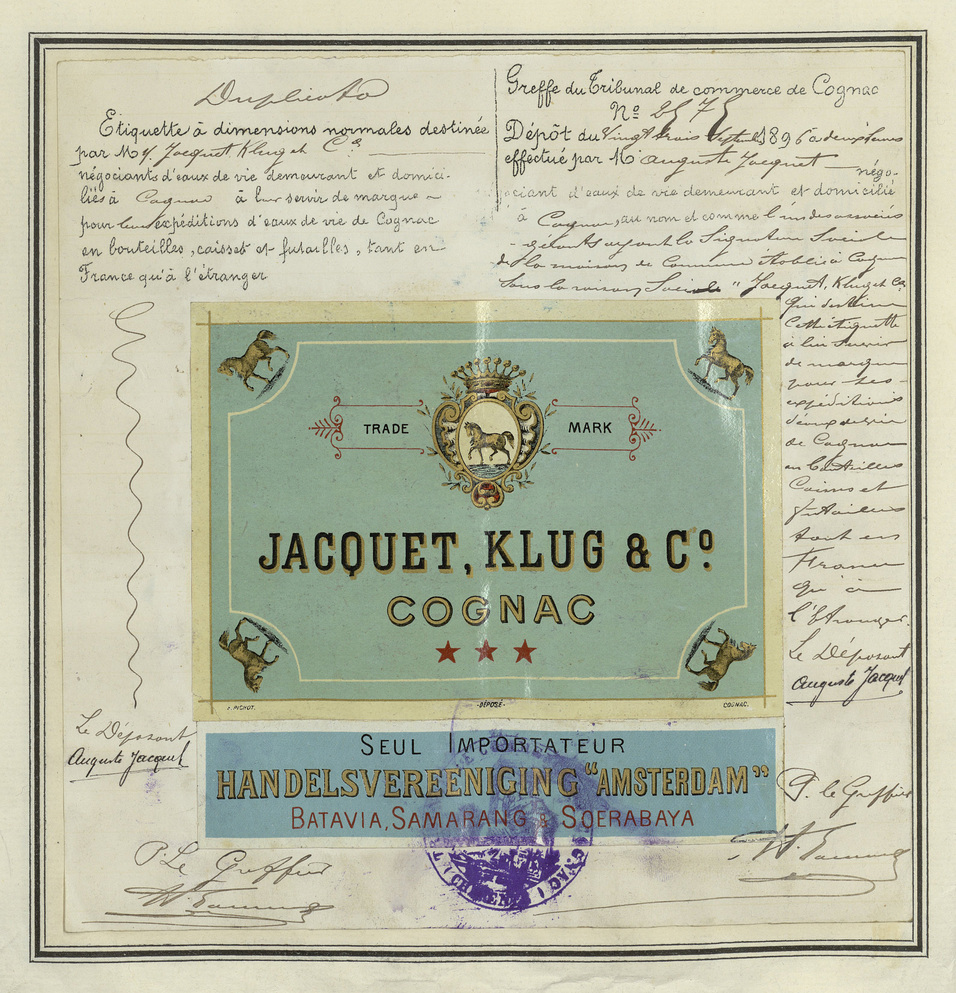 Duplicata
Etiquette à dimensions normales destinée
par MM. Jacquet, Klug et Cº
négociants d'eaux de vie demeurant et domici-
liés à Cognac à leur servir de marque
pour leurs expéditions d'eaux de vie de Cognac
en bouteilles, caisses et futailles, tant en
France qu'à l'étranger
Greffe du Tribunal de commerce de Cognac
Nº
Dépôt du Vingt trois Septembre 1896 à deux heures
effectué par M Auguste Jacquet négo-
ciant d'eaux de vie demeurant et domicilié
à Cognac, au nom et comme l'un des associés
gérants ayant la Signature Sociale
de la maison de Commerce établie à Cognac
sous la raison Sociale "Jacquet, Klug et Co
qui destine
cette étiquette
à lui servir
de marque
pour ses
expéditions
d'eaux de vie
de Cognac
en bouteilles
Caisses et
futailles
tant en
France
qu'à
l'Etranger.
Le Déposant
Auguste Jacquet
TRADE MARK
JACQUET, KLUG & Cº.
COGNAC
F. PICHOT.
-DÉPOSÉ-
COGNAC.
Le Déposant
Auguste Jacquet
SEUL IMPORTATEUR
HANDELSVEREENIGING "AMSTERDAM"
BATAVIA, SAMARANG & SOERABAYA
P. le Greffier
P. Le Greffier